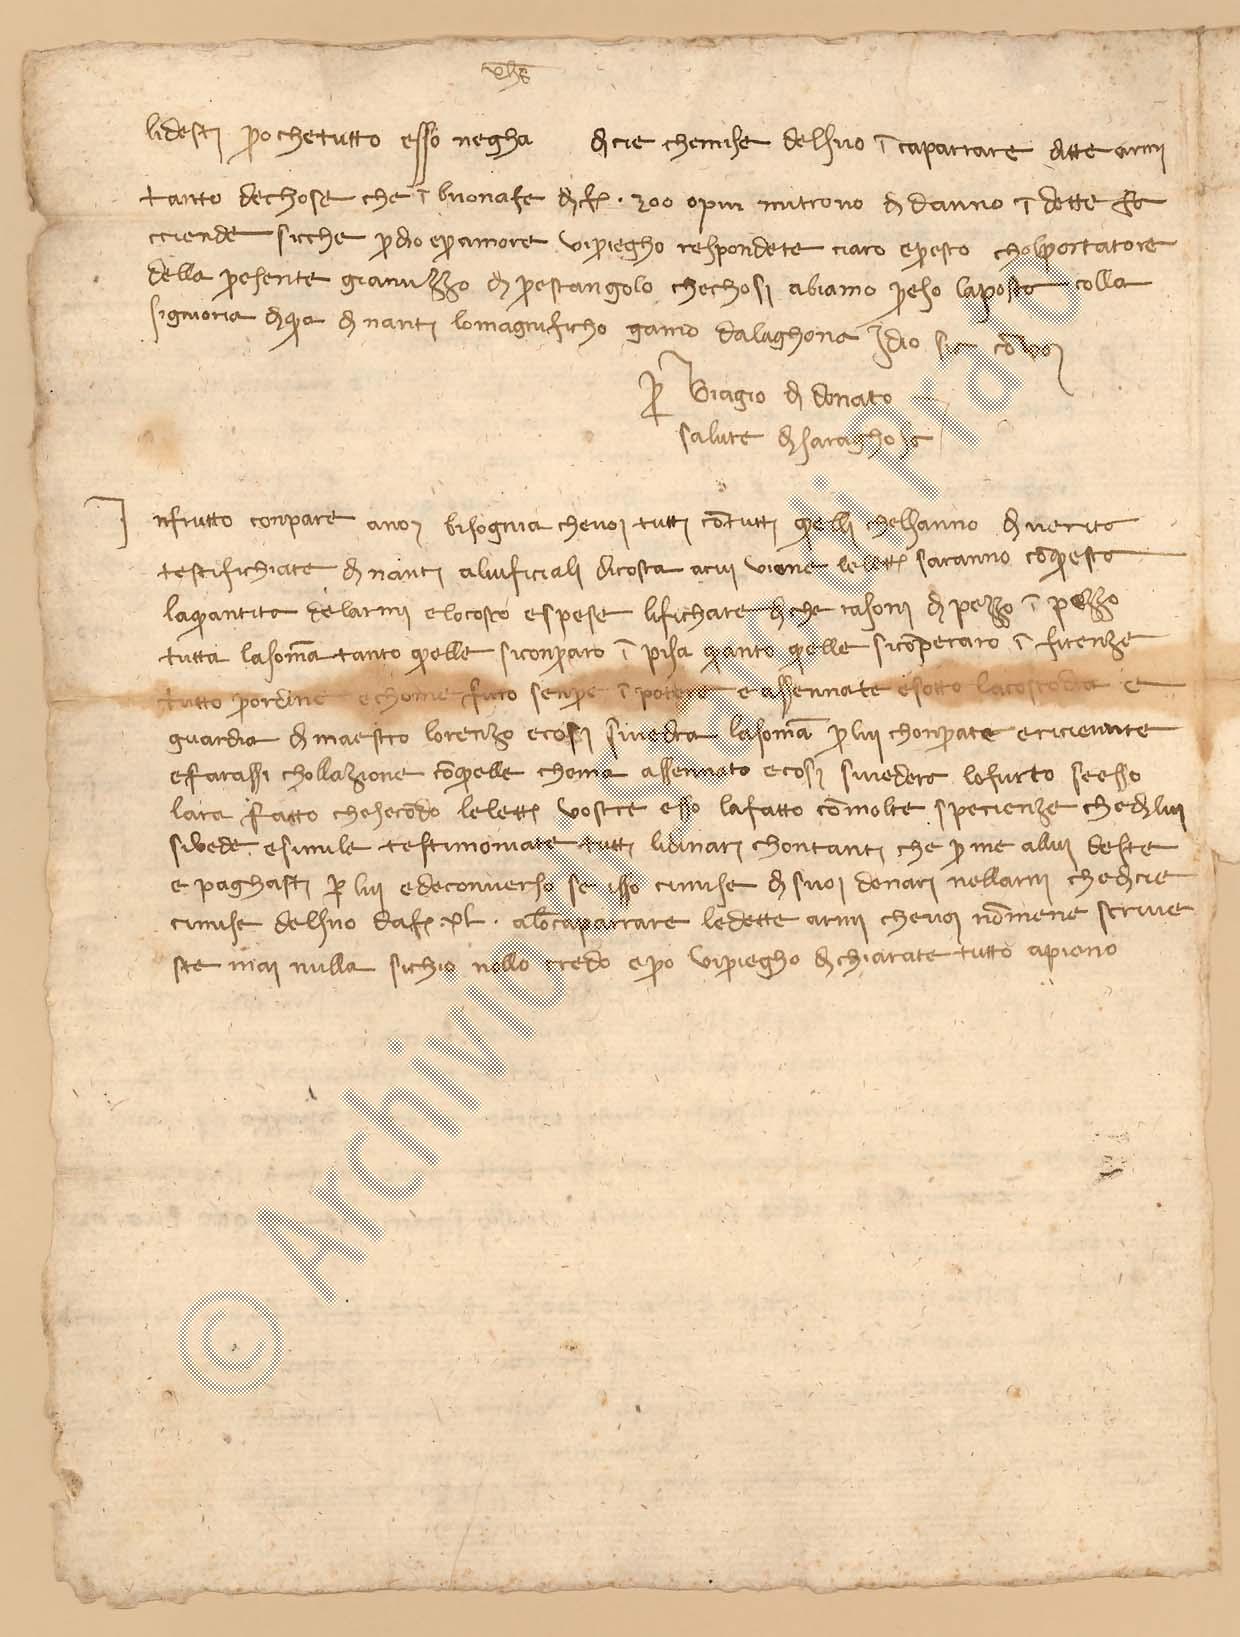 yhs
lidesti pochetutto esso negha dicie chemise delsuo ī caparrare ditte armi
tanto dechose che ī buonafe di f. 200 opiu mitrovo di danno ī dette fa
cciende sicche p dio epamore vipriegho respondete ciaro epesto cholportatore
della pesente gianuzzo di pestangolo chechosi abiamo peso laposta colla
signioria diqua dinanti lomagnificho gamo dalaghona Idio sia cō voi
p Biagio di donato
salute di saraghosa
Infrutto conpare anoi bisognia chevoi tutti cōtutti quelli chelsanno di verita
testifichiate dinanti aliuficiali dicosta acui viane lelett. saranno cō questa
laquantita delarmi elocosto espese lifichare di che rasoni di pezzo ī pezzo
tutta lasomā tanto quelle siconparo ī pisa quanto quelle sicōperaro ī firenze
tutto pordine echome furo senpe ī potere e assennate esotto lacostodia e
guardia di maestro lorenzo ecosi sivedra lasomā p lui chonprate ericievute
efarassi chollazione cō quelle choma assennato ecosi sivedera lofurto seesso
lara fatto chesecōdo lelett. vostre esso lafatto cō molte specienze chedilui
sivede esimile testimoniate tutti lidinari chontanti che p me allui deste
e paghasti p lui edeconverso se isso cimise di suoi denari nellarmi chedicie
cimise delsuo daf. xl. alōcaparrare ledette armi chevoi nōmene scrive
ste mai nulla sichio nollo credo epo vipriegho dichiarate tutto apieno
© Archivio di Stato di Prato